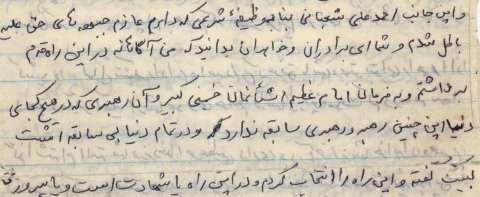 و این جانب احمد علی شعبانی بنا به وظیفهٔ شرعی که دارم عازم جبهه های حق علیه
باطل شدم و شما ای برادران و خواهران بدانید که من آگاهانه در این راه قدم
برداشتم و به فرمان امام عظیم الشأنمان خمینی کبیر و آن رهبری که در هیچ کجای
دنیا این چنین رهبر و رهبری سابقه ندارد و در تمام دنیا بی سابقه است
لبیک گفته و این راه را انتخاب کردم و در این راه یا شهادت است و یا پیروزی